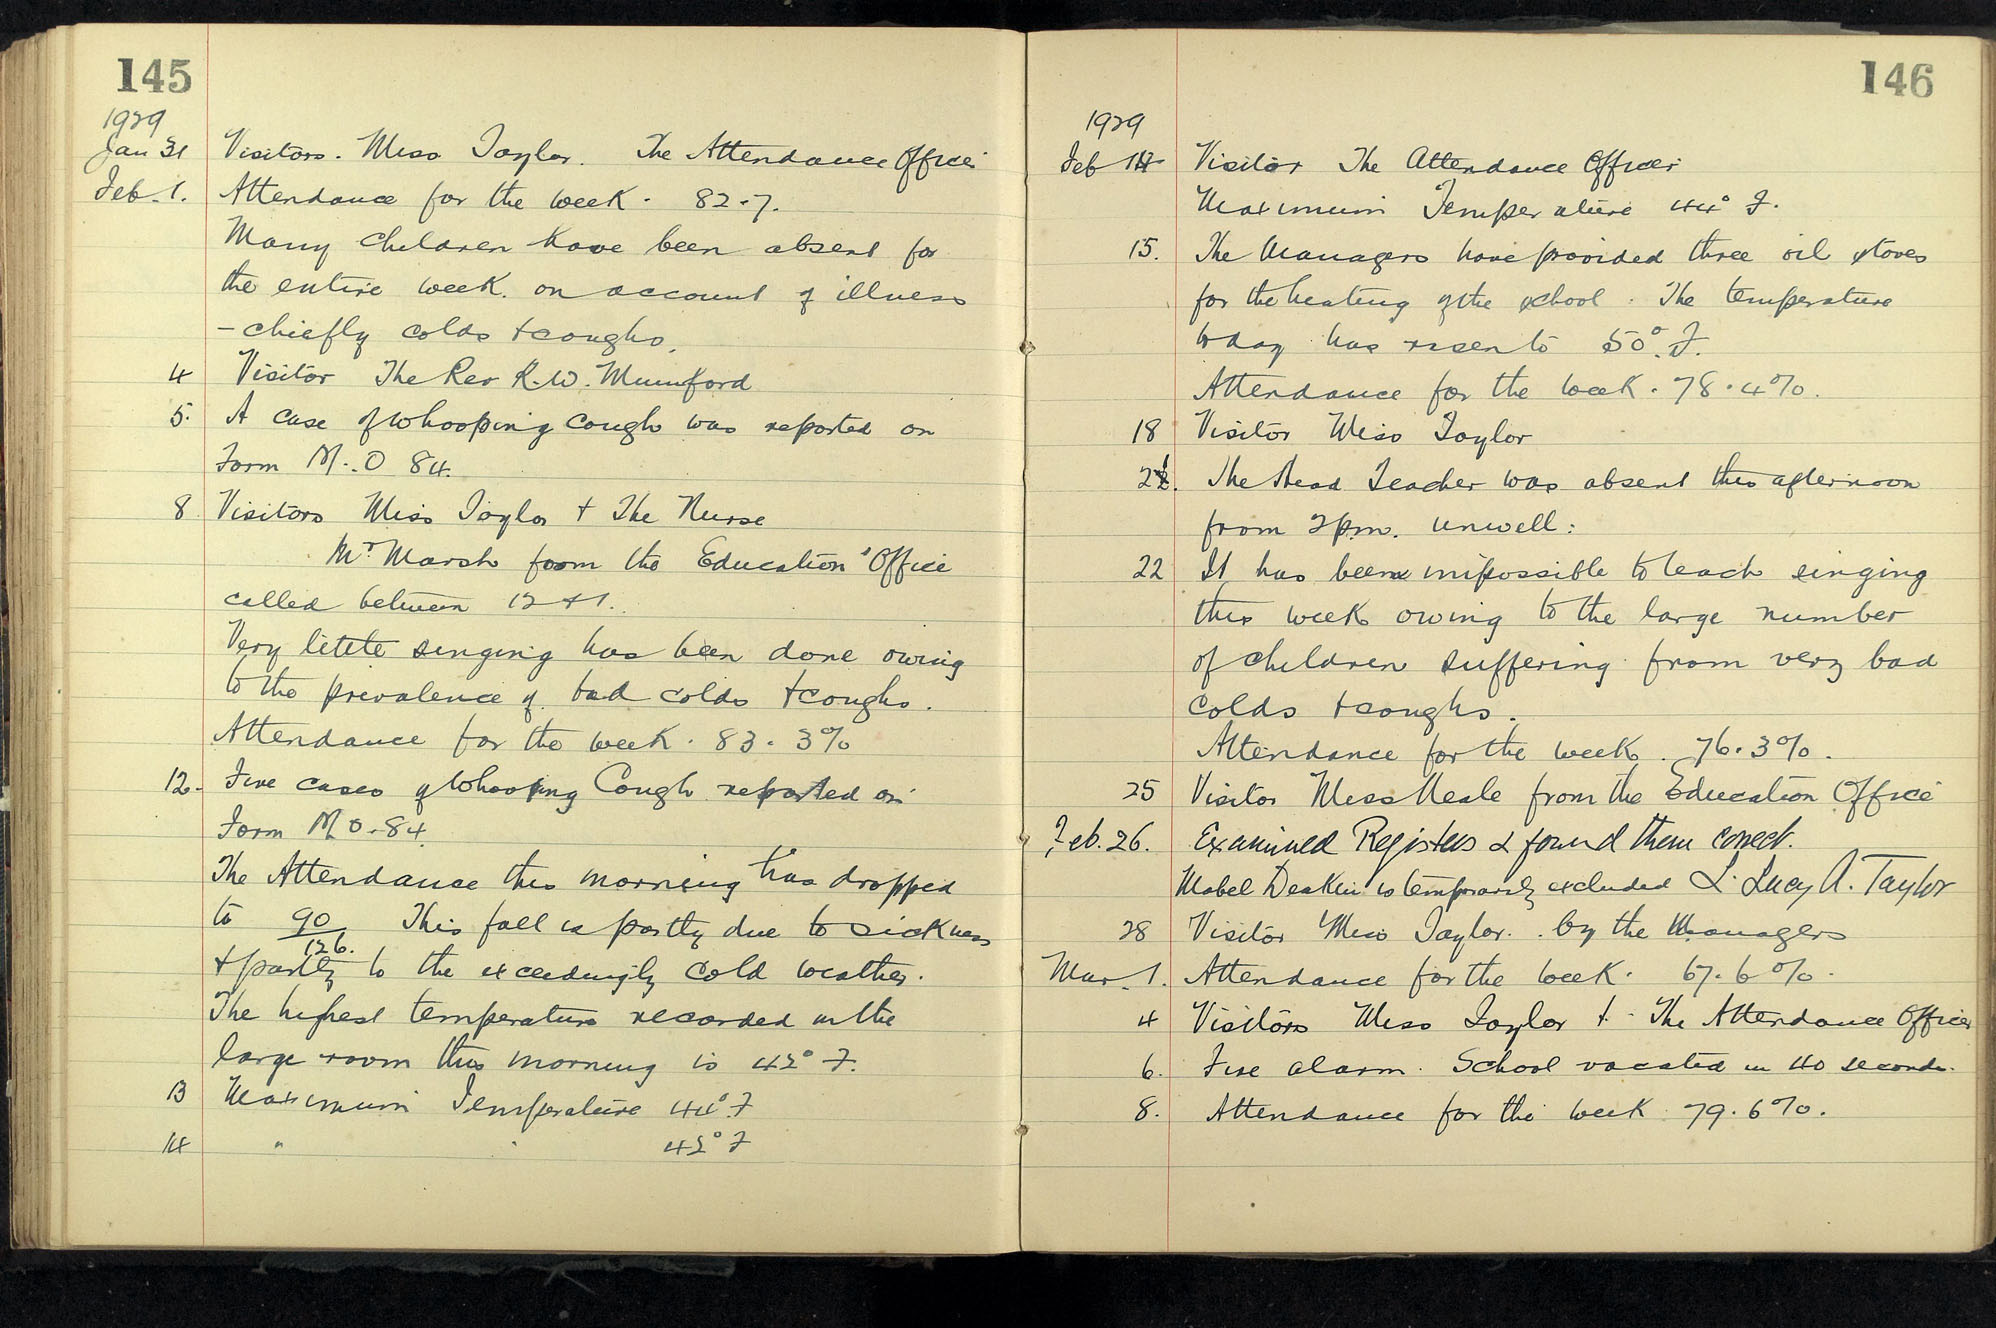 145
1929
Jan 31 Visitors. Miss Taylor. The Attendance Officer
Feb. 1. Attendance for the week. 82.7.
Many children have been absent for
the entire week on account of illness
– chiefly colds + coughs.
4 Visitor The Rev R.W. Mumford
5. A case of whooping cough was reported on
Form M.O 84.
8 Visitors Miss Taylor + The Nurse
Mr Marsh from the Education Office
called between 12 + 1.
Very little singing has been done owing
to the prevalence of bad colds + coughs.
Attendance for the week. 83.3%
12. Five cases of Whooping Cough reported on
Form M O. 84.
The Attendance this morning has dropped
to 90/126. This fall is partly due to sickness
+ partly to the exceedingly cold weather.
The highest temperature recorded in the
large room this morning is 45° F.
13 Maximum Temperature 44° F
14 " " 45° F
146
1929
Feb 14 Visitor The Attendance Officer
Maximum Temperature 44° F.
15. The Managers have provided three oil stoves
for the heating of the school. The temperature
today has risen to 50° F.
Attendance for the week. 78.4%.
18 Visitor Miss Taylor
21. The Head Teacher was absent this afternoon
from 2 p.m. unwell.
22 It has been impossible to teach singing
this week owing to the large number
of children suffering from very bad
colds + coughs.
Attendance for the week. 76.3%.
25 Visitor Miss Neale from the Education Office
Feb. 26. Examined Registers & found them correct.
Mabel Deakin is temporarily excluded L. Lucy A. Taylor
28 Visitor Miss Taylor. by the Managers
Mar. 1. Attendance for the week. 67.6%.
4 Visitors Miss Taylor + The Attendance Officer
6. Fire alarm. School vacated in 40 seconds.
8. Attendance for the week 79.6%.